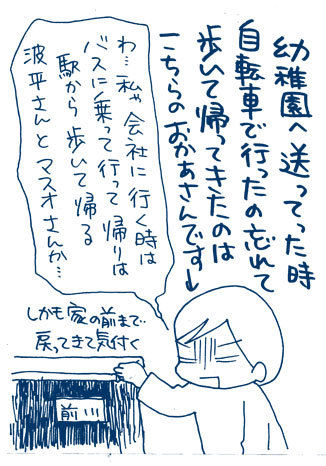 幼稚園へ送ってった時
自転車で行ったの忘れて
歩いて帰ってきたのは
こちらのおかあさんです→
わ…私ゃ会社に行く時は
バスに乗って行って帰りは
駅から歩いて帰る
波平さんとマスオさんか…
しかも家の前まで
戻ってきて気付く
前川